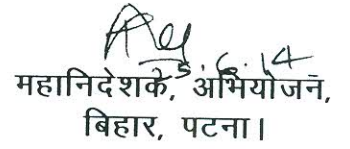 5.6.14
महानिदेशक, अभियोजन,
बिहार, पटना।